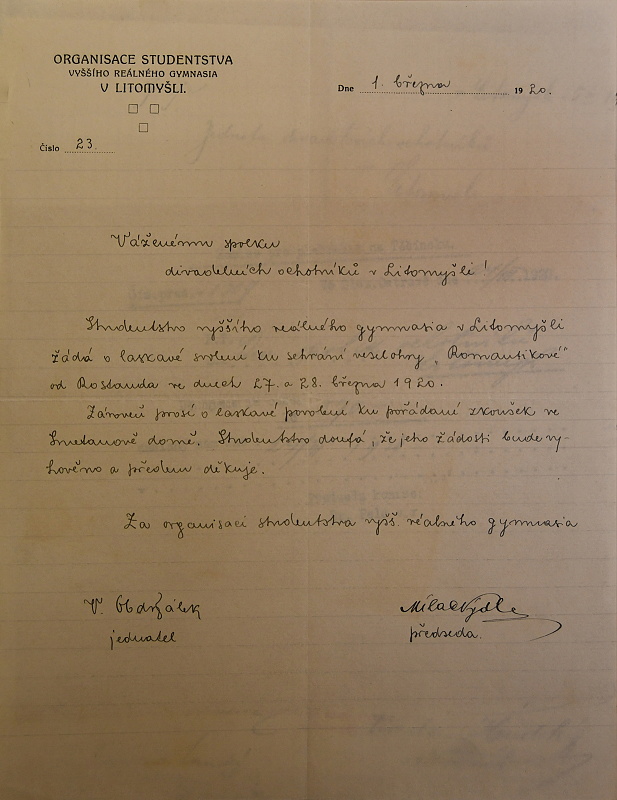 ORGANISACE STUDENTSTVA
VYŠŠÍHO REÁLNÉHO GYMNASIA
V LITOMYŠLI.
Dne 1. března 1920.
Číslo 23
Váženému spolku
divadelních ochotníků v Litomyšli!
Studentstvo vyššího reálného gymnasia v Litomyšli
žádá o laskavé svolení ku sehrání veselohry „Romantikové"
od Rostanda ve dnech 27. a 28. března 1920.
Zároveň prosí o laskavé povolení ku pořádání zkoušek ve
Smetanově domě. Studentstvo doufá, že jeho žádosti bude vy-
hověno a předem děkuje.
Za organisaci studentstva vyšš. reálného gymnasia
V. Obdržálek
jednatel
předseda.